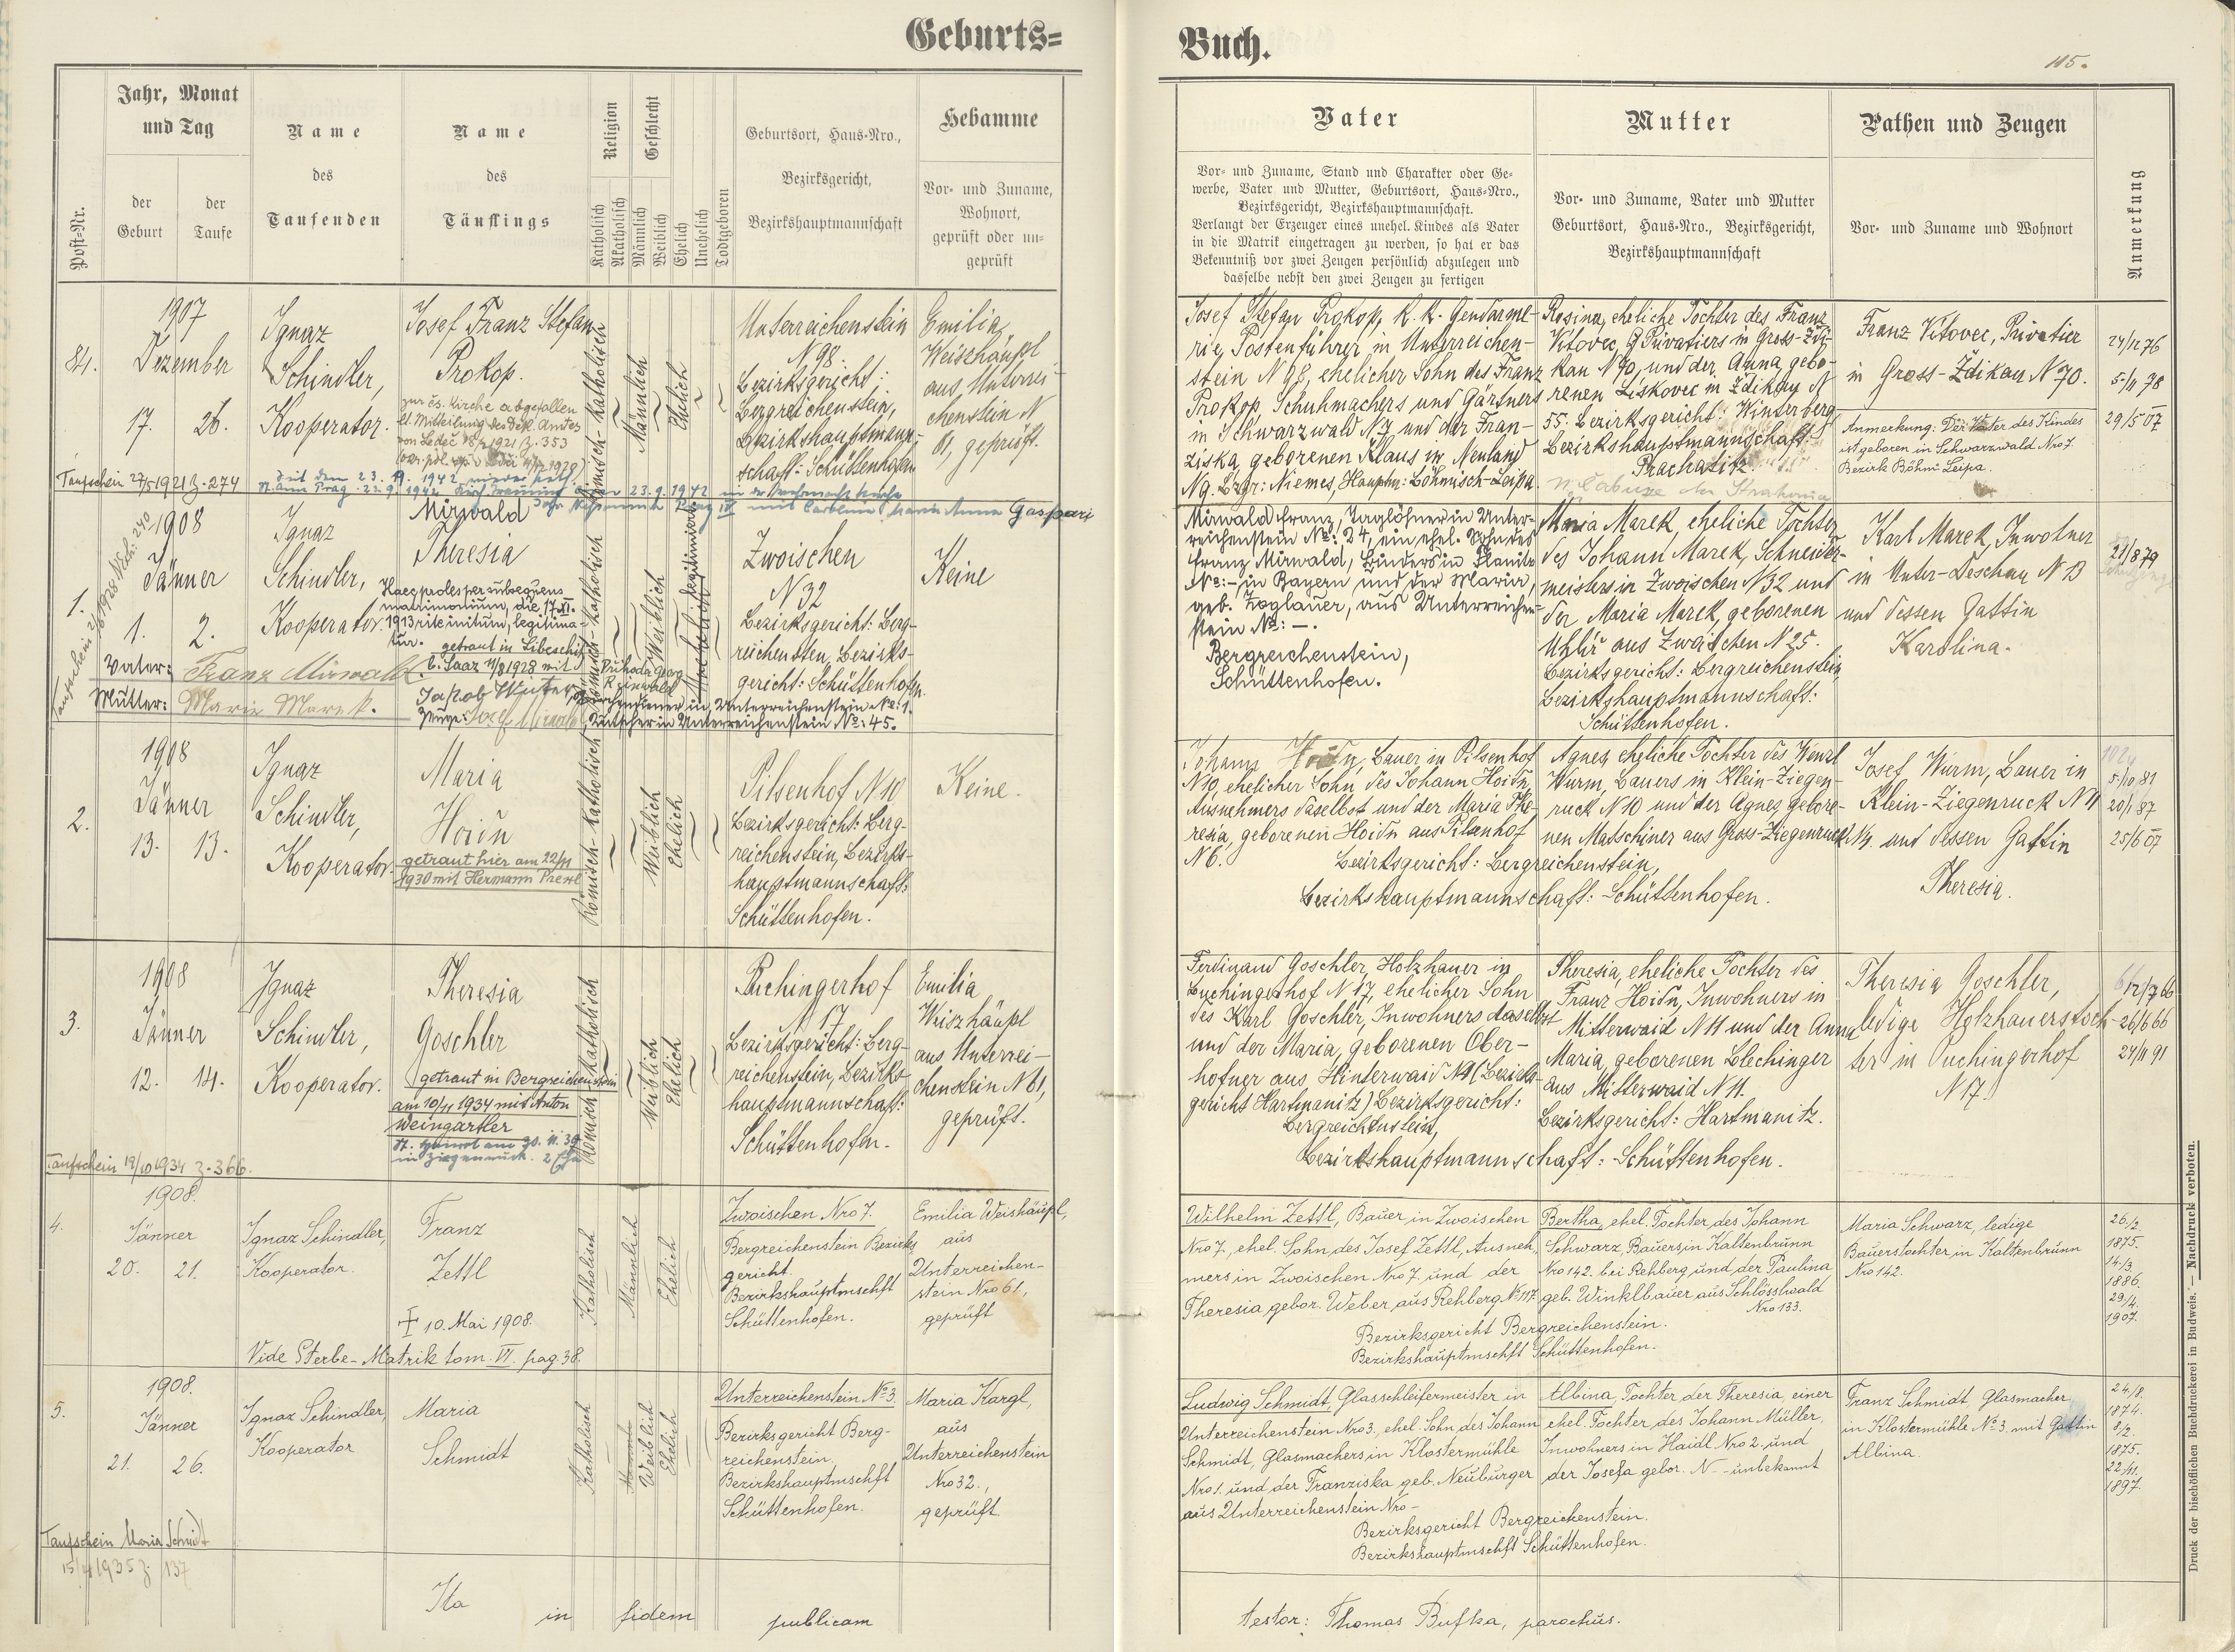 Geburts=
Buch.
115.
Post=Nr.
Jahr, Monat
und Tag
der
Geburt
der
Taufe
Name
des
Taufenden
Name
des
Täuflings
Religion
Katholisch
Akatholisch
Geschlecht
Männlich
Weiblich
Ehelich
Unehelich
Todtgeboren
Geburtsort, Haus=Nro.,
Bezirksgericht,
Bezirkshauptmannschaft
Hebamme
Vor= und Zuname,
Wohnort,
geprüft oder un=
geprüft
Vater
Vor= und Zuname, Stand und Charakter oder Ge=
werbe, Vater und Mutter, Geburtsort, Haus=Nro.,
Bezirksgericht, Bezirkshauptmannschaft.
Verlangt der Erzeuger eines unehel. Kindes als Vater
in die Matrik eingetragen zu werden, so hat er das
Bekenntniß vor zwei Zeugen persönlich abzulegen und
dasselbe nebst den zwei Zeugen zu fertigen
Mutter
Vor= und Zuname, Vater und Mutter
Geburtsort, Haus=Nro., Bezirksgericht,
Bezirkshauptmannschaft
Pathen und Zeugen
Vor= und Zuname und Wohnort
Anmerkung
84.
1907
Dezember
17. 26.
Ignaz
Schindler,
Kooperator.
Josef Franz Stefan
Prokop.
zur čs. Kirche abgefallen
lt. Mitteilung des Amtes
von Ledeč 1921 Z. 353
Taufschein 27/5 1921 Z. 274
Römisch-Katholisch
Männlich
Ehelich
Unterreichenstein
N 98.
Bezirksgericht:
Bergreichenstein,
Bezirkshauptmann-
schaft: Schüttenhofen
Emilia
Weiszhäupl
aus Unterrei-
chenstein N
61, geprüft.
Josef Stefan Prokop, K. k. Gendarme-
rie, Postenführer in Unterreichen-
stein N 98, ehelicher Sohn des Franz
Prokop, Schuhmachers und Gärtners
in Schwarzwald N 7 und der Fran-
ziska, geborenen Klaus in Neuland
N 9. Bzgr: Niemes, Hauptm: Böhmisch-Leipa
Rosina, eheliche Tochter des Franz
Vitovec, Privatiers in Gross-Zdi-
kau N 90, und der Anna, gebo-
renen Liskovec in Ždikau N
55. Bezirksgericht: Winterberg
Bezirkshauptmannschaft:
Prachatitz.
Franz Vitovec, Privatier
in Gross-Ždikau N 70.
Anmerkung: Der Vater des Kindes
ist geboren in Schwarzwald Nro 7.
Bezirk Böhm. Leipa.
24/12 76
5/11 78
29/5 07
1.
1908
Jänner
1. 2.
Ignaz
Schindler,
Kooperator.
Mirwald
Theresia
Haec proles per subsequens
matrimonium, die 17. XI.
1913 rite initum, legitima-
tur.
getraut in Libeschitz
b. Saaz 11/8 1928 mit
Vater: Franz Mirwald.
Mutter: Marie Marek.
Römisch-Katholisch
Weiblich
Unehelich
legitimiert
Zwoischen
N 32
Bezirksgericht: Berg-
reichenstein, Bezirks-
gericht: Schüttenhofen.
Kirchendiener in Unterreichenstein No: 1.
Kutscher in Unterreichenstein No: 45.
Keine
Mirwald Franz, Taglöhner in Unter-
reichenstein No: 24, ein ehel. Sohn des
Franz Mirwald, Binders in
No: – in Bayern und der Maria,
geb. Zoglauer, aus Unterreichen-
stein No: –.
Bergreichenstein,
Schüttenhofen.
Maria Marek, eheliche Tochter
des Johann Marek, Schneider-
meisters in Zwoischen N 32 und
der Maria Marek, geborenen
Uhlíř aus Zwoischen N 25.
Bezirksgericht: Bergreichenstein
Bezirkshauptmannschaft:
Schüttenhofen.
Karl Marek, Inwohner
in Unter-Teschau N 13
und dessen Gattin
Karolina.
21/8 79
2.
1908
Jänner
13. 13.
Ignaz
Schindler,
Kooperator
Maria
Hoidn
getraut hier am 22/11
1930 mit Hermann
Römisch-Katholisch
Weiblich
Ehelich
Pilsenhof N 10
Bezirksgericht: Berg-
reichenstein, Bezirks-
hauptmannschaft:
Schüttenhofen.
Keine.
Johann Hoidn, Bauer in Pilsenhof
N 10, ehelicher Sohn des Johann Hoidn,
Ausnehmers daselbst und der Maria The-
resia, geborenen Hoidn aus Pilsenhof
N 6.
Agnes, eheliche Tochter des Wenzl
Wurm, Bauers in Klein-Ziegen-
ruck N 10 und der Agnes gebore-
nen Matschiner aus Gross-Ziegenruck N 4.
Bezirksgericht: Bergreichenstein,
Bezirkshauptmannschaft: Schüttenhofen.
Josef Wurm, Bauer in
Klein-Ziegenruck N 11
und dessen Gattin
Theresia.
5/10 81
20/1 87
25/6 07
3.
1908
Jänner
12. 14.
Ignaz
Schindler,
Kooperator.
Theresia
Goschler
getraut in Bergreichenstein
am 10/11 1934 mit Anton
Weingartler
Taufschein 19/10 1934 Z. 366.
Römisch Katholisch
Weiblich
Ehelich
Puchingerhof
17
Bezirksgericht: Berg-
reichenstein, Bezirks-
hauptmannschaft:
Schüttenhofen.
Emilia
Weiszhäupl
aus Unterrei-
chenstein N 61,
geprüft.
Ferdinand Goschler, Holzhauer in
Puchingerhof N 17, ehelicher Sohn
des Karl Goschler, Inwohners daselbst
und der Maria, geborenen Ober-
hofner aus Hinterwaid N 9 (Bezirks-
gericht Hartmanitz) Bezirksgericht:
Bergreichenstein,
Theresia, eheliche Tochter des
Franz Hoidn, Inwohners in
Mitterwaid N 11 und der Anna
Maria, geborenen Blechinger
aus Mitterwaid N 11.
Bezirksgericht: Hartmanitz.
Bezirkshauptmannschaft: Schüttenhofen.
Theresia Goschler,
ledige Holzhauerstoch-
ter in Puchingerhof
N 17.
26/6 66
24/11 91
4.
1908.
Jänner
20. 21.
Ignaz Schindler,
Kooperator.
Franz
Zettl
† 10. Mai 1908.
Vide Sterbe-Matrik tom. VI. pag. 38.
Katholisch
Männlich
Ehelich
Zwoischen Nro 7.
Bergreichenstein Bezirks
gericht.
Bezirkshauptmschft
Schüttenhofen.
Emilia Weishäupl,
aus
Unterreichen-
stein Nro 61,
geprüft
Wilhelm Zettl, Bauer in Zwoischen
Nro 7, ehel. Sohn des Josef Zettl, Ausneh-
mers in Zwoischen Nro 7 und der
Theresia gebor. Weber aus Rehberg No 117
Bertha, ehel. Tochter des Johann
Schwarz, Bauers in Kaltenbrunn
Nro 142. bei Rehberg und der Paulina
geb. Winklbauer aus Schlösslwald
Nro 133.
Bezirksgericht Bergreichenstein.
Bezirkshauptmschft Schüttenhofen.
Maria Schwarz, ledige
Bauerstochter in Kaltenbrunn
Nro 142.
26/2.
1875.
14/3.
1886.
29/4.
1907.
5.
1908.
Jänner
21. 26.
Ignaz Schindler,
Kooperator
Maria
Schmidt
Taufschein Maria Schmidt
15/4 1935 Z. 137
Katholisch
Weiblich
Ehelich
Unterreichenstein No 3.
Bezirksgericht Berg-
reichenstein,
Bezirkshauptmschft
Schüttenhofen.
Maria Kargl,
aus
Unterreichenstein
Nro 32.,
geprüft.
Ludwig Schmidt, Glasschleifermeister in
Unterreichenstein Nro 3., ehel. Sohn des Johann
Schmidt, Glasmachers in Klostermühle
Nro 1. und der Franziska geb. Neuburger
aus Unterreichenstein Nro –
Albina, Tochter der Theresia, einer
ehel. Tochter des Johann Müller,
Inwohners in Haidl Nro 2. und
der Josefa gebor. N – unbekannt
Bezirksgericht Bergreichenstein.
Bezirkshauptmschft Schüttenhofen.
Franz Schmidt, Glasmacher
in Klostermühle No 3. mit Gattin
Albina.
24/8.
1874.
8/2.
1875.
22/11.
1897.
Ita in fidem publicam
testor: Thomas Bufka, parochus.
Druck der bischöflichen Buchdruckerei in Budweis. — Nachdruck verboten.